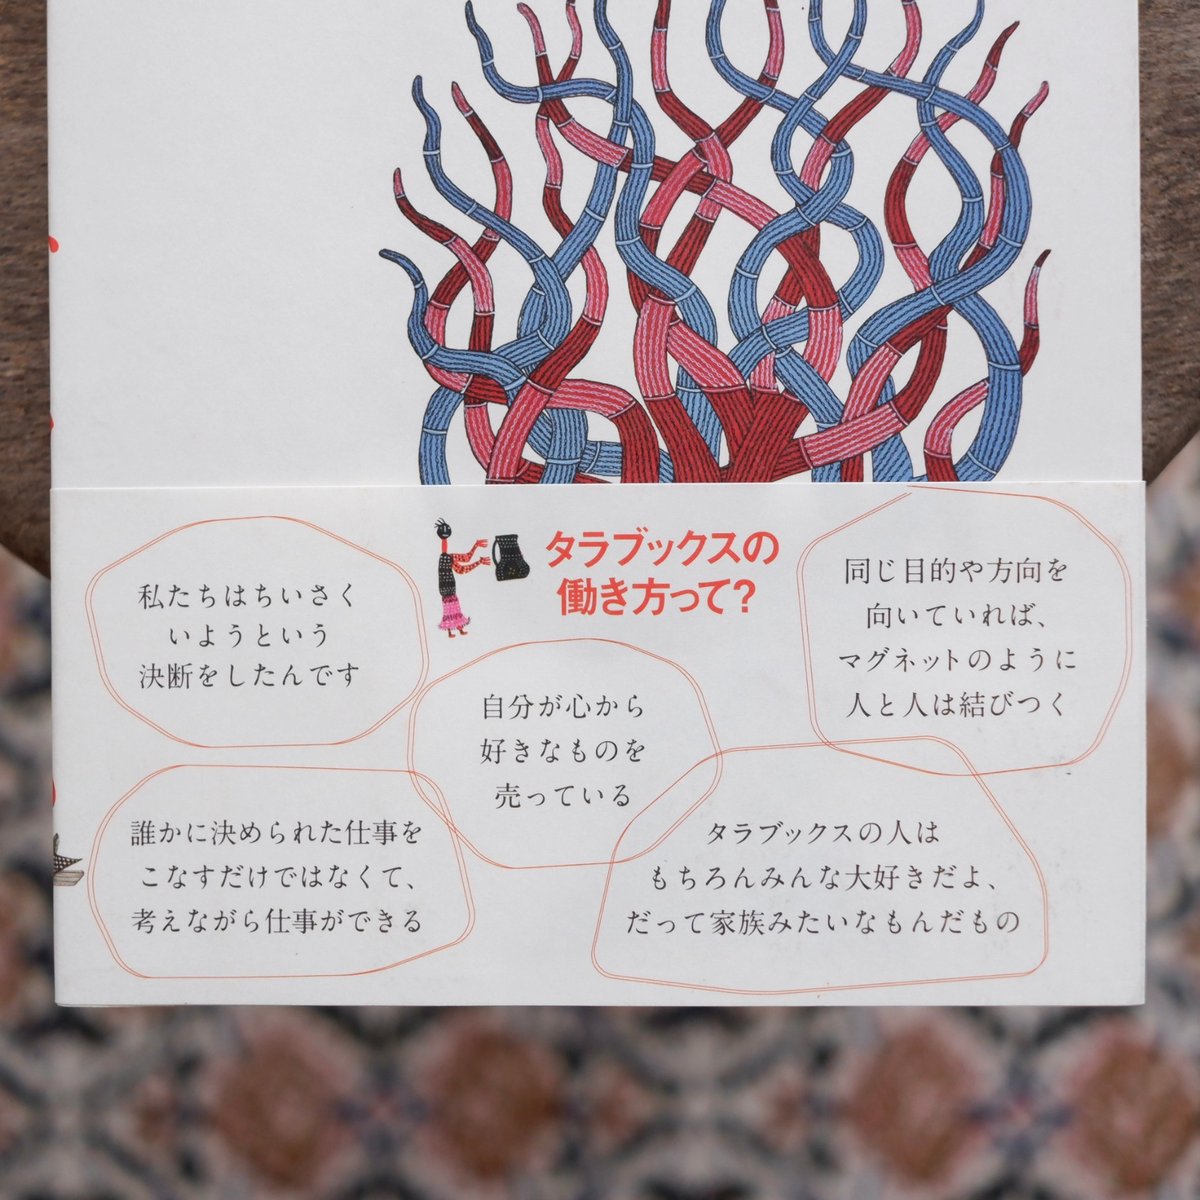 タラブックスの
働き方って?
私たちはちいさく
いようという
決断をしたんです
同じ目的や方向を
向いていれば、
マグネットのように
人と人は結びつく
自分が心から
好きなものを
売っている
誰かに決められた仕事を
こなすだけではなくて、
考えながら仕事ができる
タラブックスの人は
もちろんみんな大好きだよ、
だって家族みたいなもんだもの